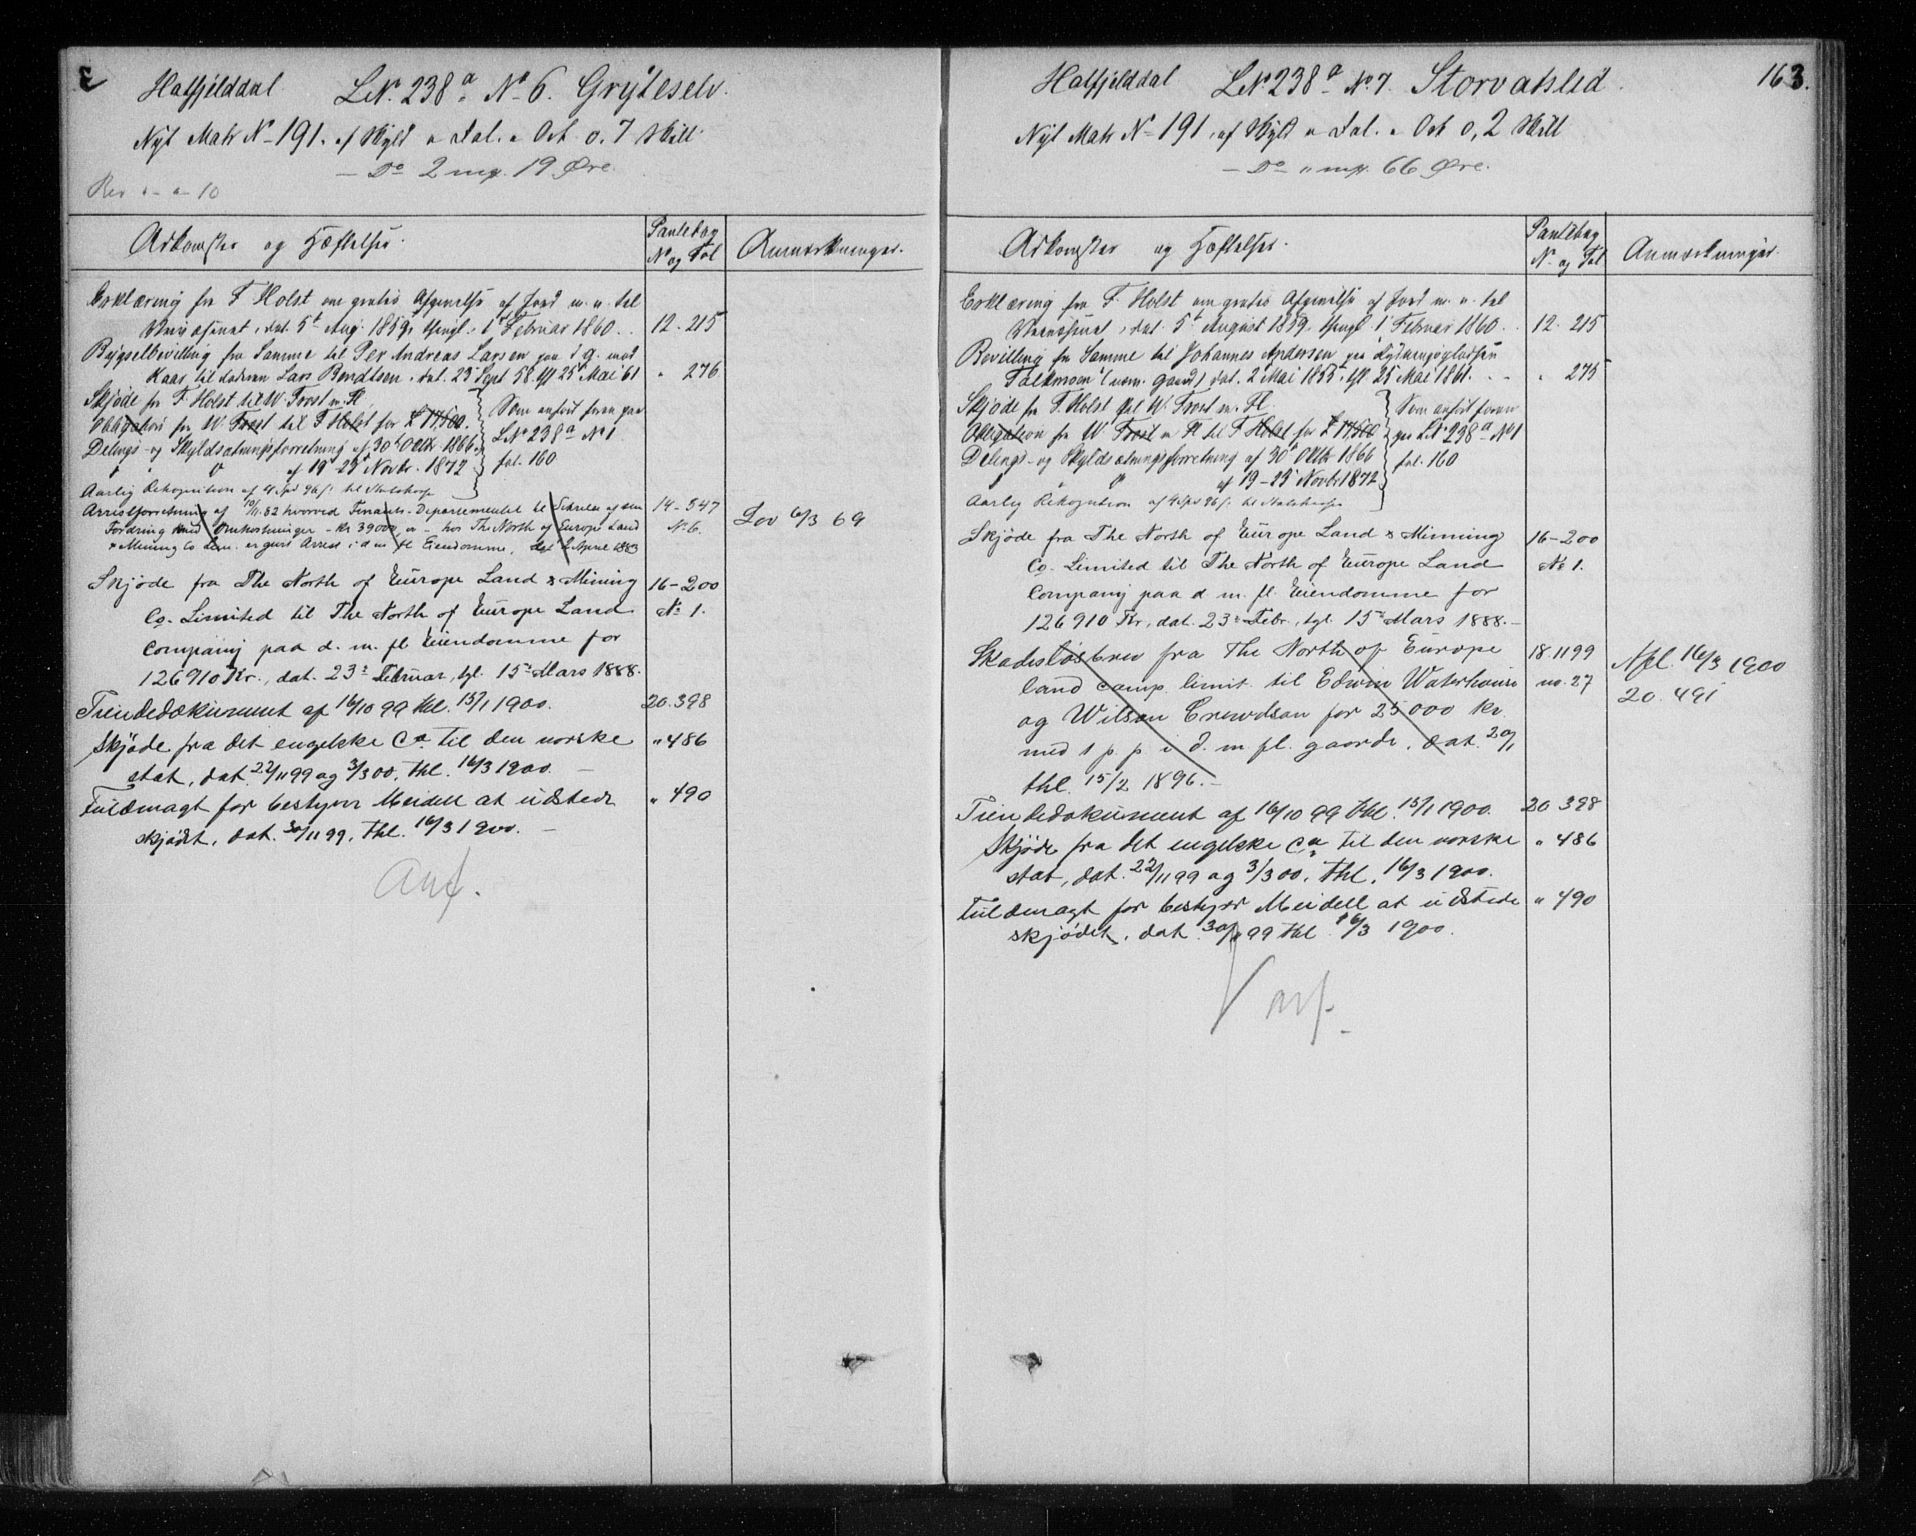 Hatfjelddal. LNr. 238a No 6. Gryteselv.
Nyt Matr N- 191. af Skyld " Dal. " Ort 0. 7 Skill.
- Do 2 mk. 19 Øre.
Rev " - " - 10
Adkomster og Hæftelser.
Pantebog
No og Fol
Anmærkninger.
Erklæring fra F. Holst om gratis Afgivelse af Jord m. v. til
dat. 5t Aug. 1859, thgl. 1 Februar 1860. . 12. 215
Bygselbevilling fra Samme til Per Andreas Larsen paa d. g. mod
Kaar til Lars Bendtsen, dat. 23 Sept 58. tgl 25 Mai 61 " 276
Skjøde fra F. Holst til W. Frost m. Fl.
Obligation fra W. Frost til F Holst for £ 17,500.
Delings- og Skyldsætningsforretning af 30t Oktbr 1866
" " af 19-23 Novbr. 1872
Som anført foran paa
LNo 238a No 1
fol. 160
Aarlig Rekognition af 4 Spd 96 s. til Statskasse
Arrestforretning af 10/11 82 hvorved Finants-Departementet til Sikrelse af sin 14-547
Fordring med Omkostninger - Kr 39000, - hos The North of Europe Land No 6.
& Mining Co Lim. er gjort Arrest i d. m. fl Eiendomme, tgl 2 April 1883
Lov 6/3 69
Skjøde fra The North of Europe Land & Mining 16-200
Co. Limited til The North of Europe Land No 1.
Company paa d. m. fl Eiendomme for
126910 Kr., dat. 23: Februar, tgl. 15: Mars 1888.
Tiendedokument af 16/10 99 thl. 15/1 1900. 20. 398
Skjøde fra det engelske Co til den norske " 486
stat, dat. 22/11 99 og 3/3 00. thl. 16/3 1900. -
Fuldmagt for bestyrer Meidell at udstede " 490
skjødet, dat. 30/11 99, thl. 16/3 1900. -
Anf.
Hatfjelddal LNr. 238a No 7. Storvatslid. 163.
Nyt Matr N- 191. af Skyld " Dal. " Ort 0, 2 Skill
- Do " mk. 66 Øre.
Adkomster og Hæftelser.
Pantebog
N. og Fol
Anmærkninger.
Erklæring fra F. Holst om gratis Afgivelse af Jord m. v. til
dat. 5t August 1859, thgl. 1 Februar 1860. . 12. 215
Bevilling fra Samme til Johannes Andersen paa
(unm. Gaard) dat. 2 Mai 1855, tgl 25 Mai 1861. . - " 275
Skjøde fra F. Holst til W. Frost m. Fl.
Obligation fra W Frost m Fl til F Holst for £ 17,500
Delings- og Skyldsætningsforretning af 30t Oktbr 1866
" " af 19-23 Novbr 1872
Som anført foran
paa LNo 238a No 1
fol. 160
Aarlig Rekognition af 4 Spd 96 s. til Statskasse
Skjøde fra The North of Europe Land & Minning 16-200
Co. Limited til The North of Europe Land No 1.
Company paa d m. fl. Eiendomme for
126910 Kr, dat. 23: Febr., tgl. 15: Mars 1888. -
Skadesløsbrev fra The North of Europe 18. 1199
land comp. limit. til Edwin Waterhouse no. 27
og Wilson Crewdson for 25000 kr.
med 1 p. p. i d. m fl. gaarde, dat. 20/1
thl. 15/2 1896. -
Afl. 16/3 1900
20. 491
Tiendedokument af 16/10 99 thl. 15/1 1900. 20 398
Skjøde fra det engelske Co til den norske " 486
stat, dat. 22/11 99 og 3/3 00, thl. 16/3 1900.
Fuldmagt for bestyrer Meidell at udstede " 490
skjødet, dat. 30/11 99 thl 16/3 1900.
Anf.